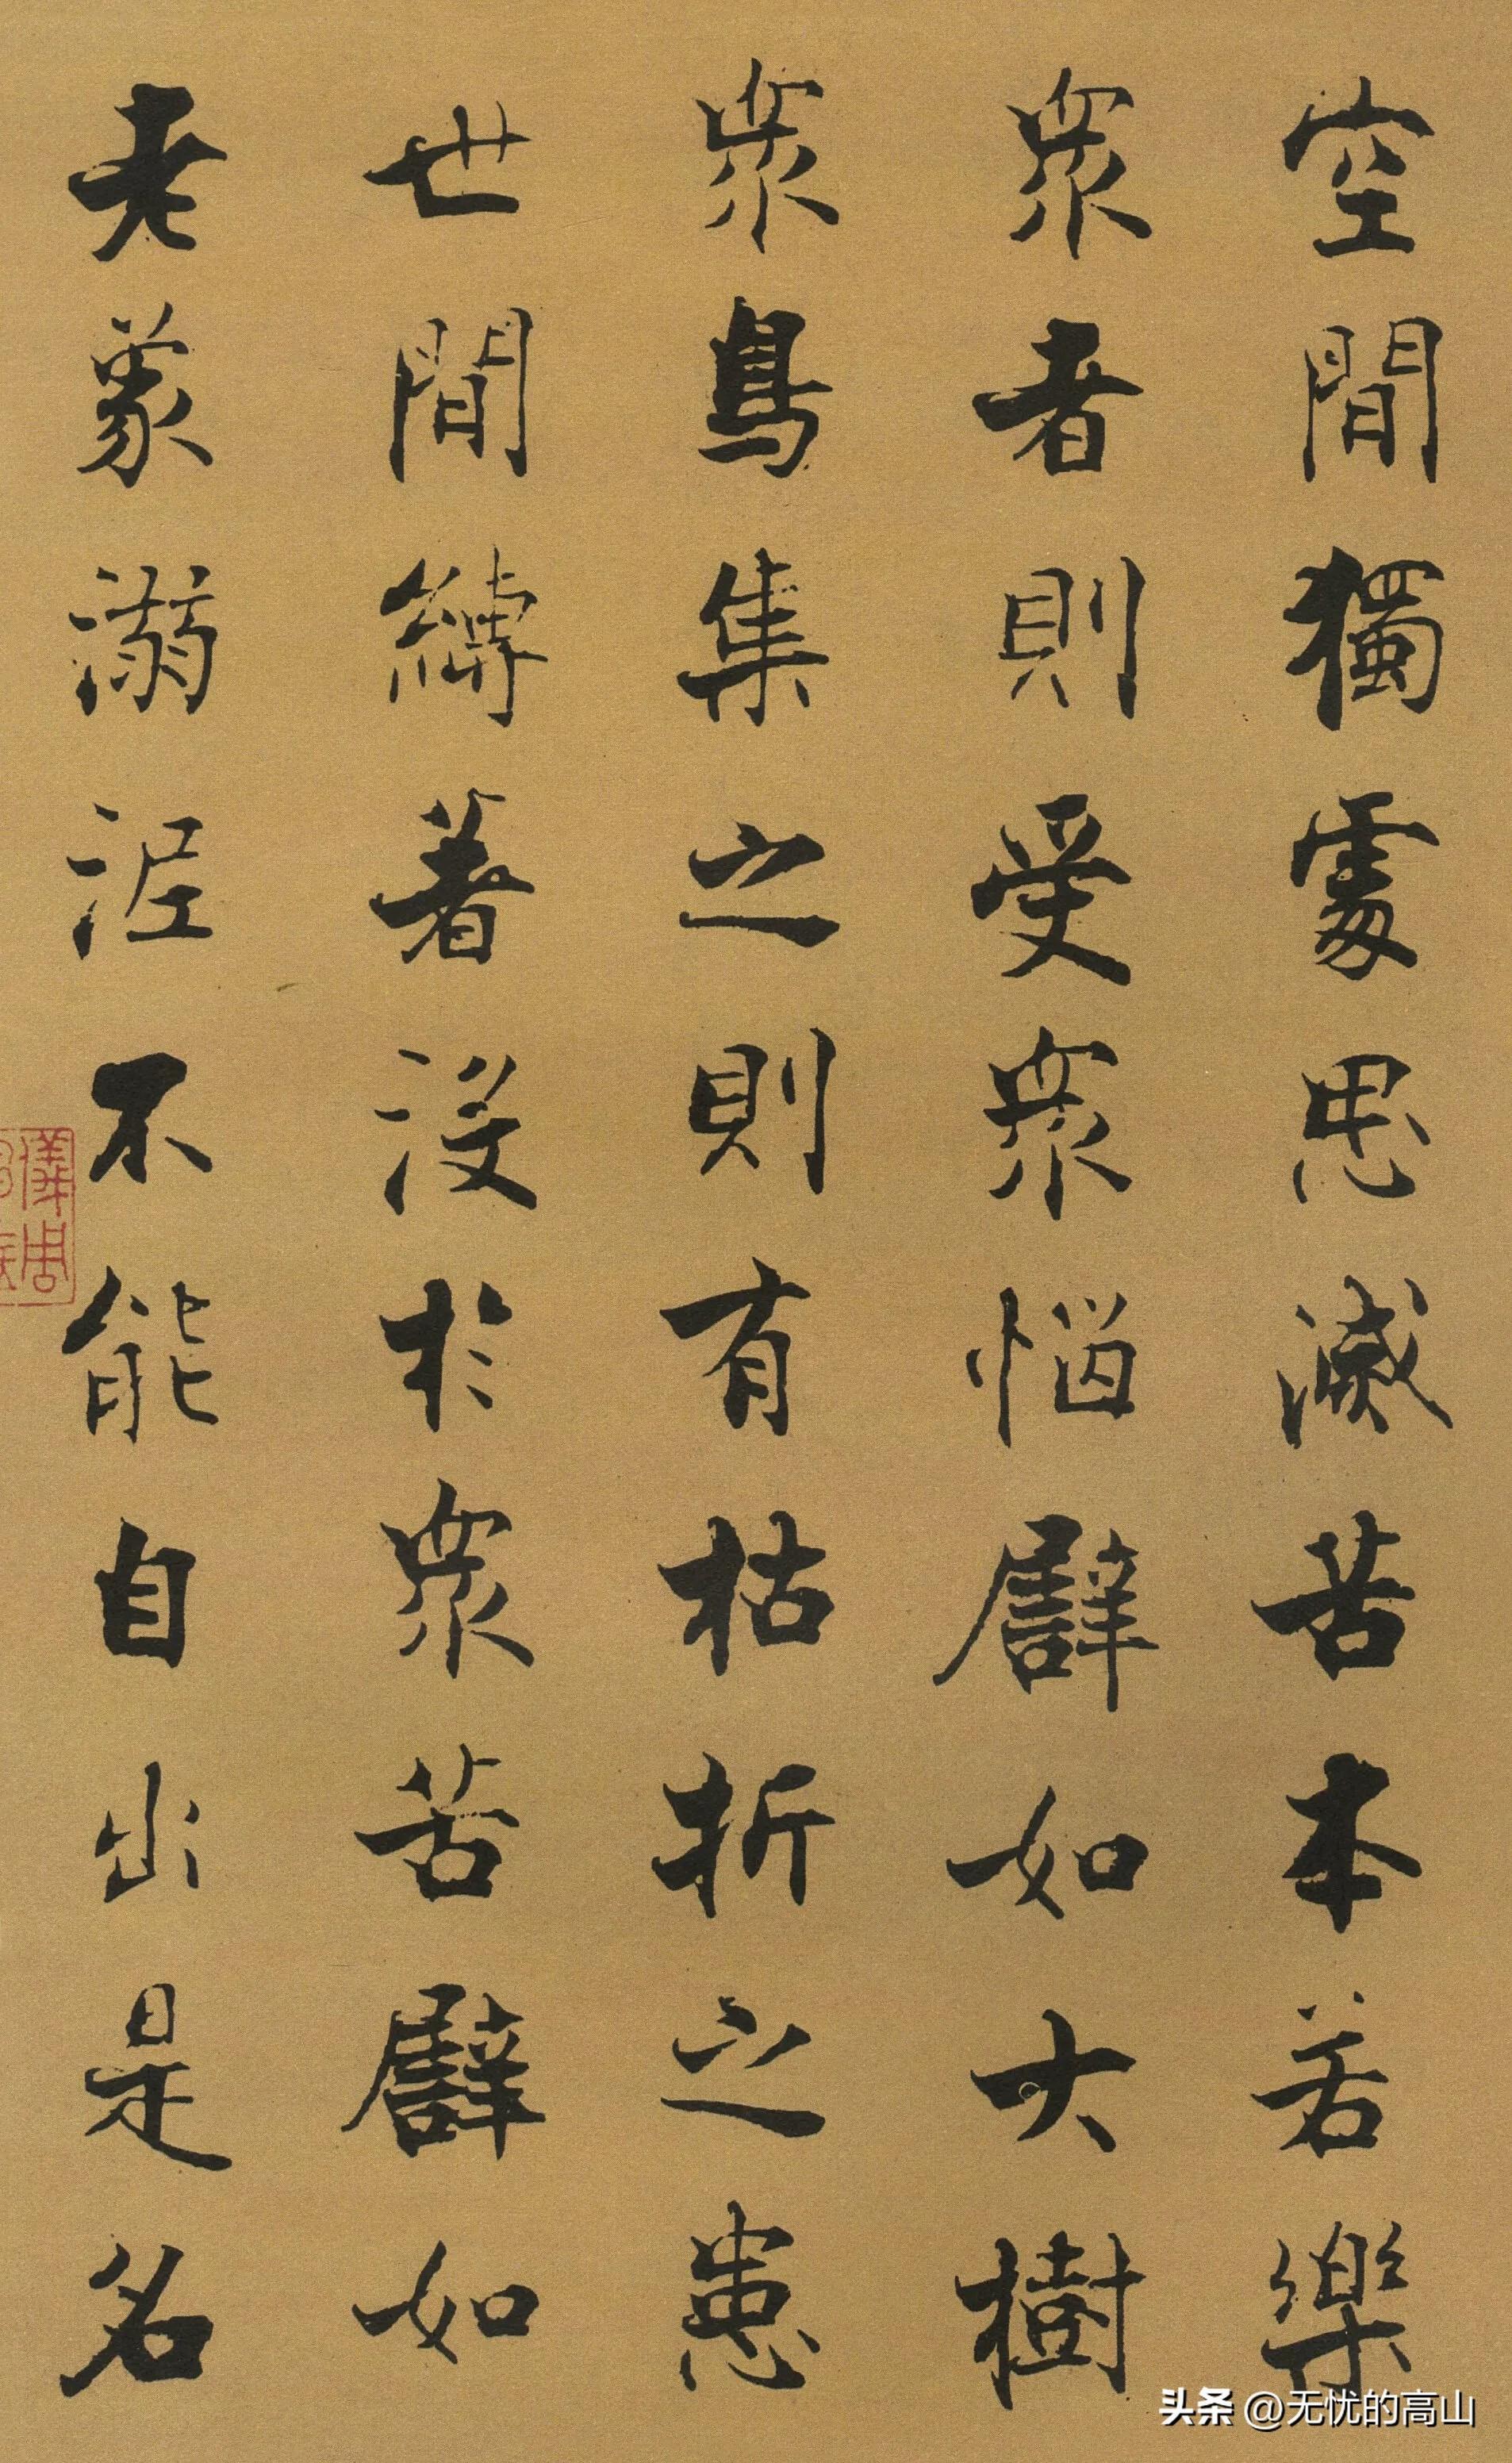 空閒獨處思滅苦本若樂
眾者則受眾惱譬如大樹
眾鳥集之則有枯折之患
世間縛著没於眾苦譬如
老象溺泥不能自出是名
头条 @无忧的高山